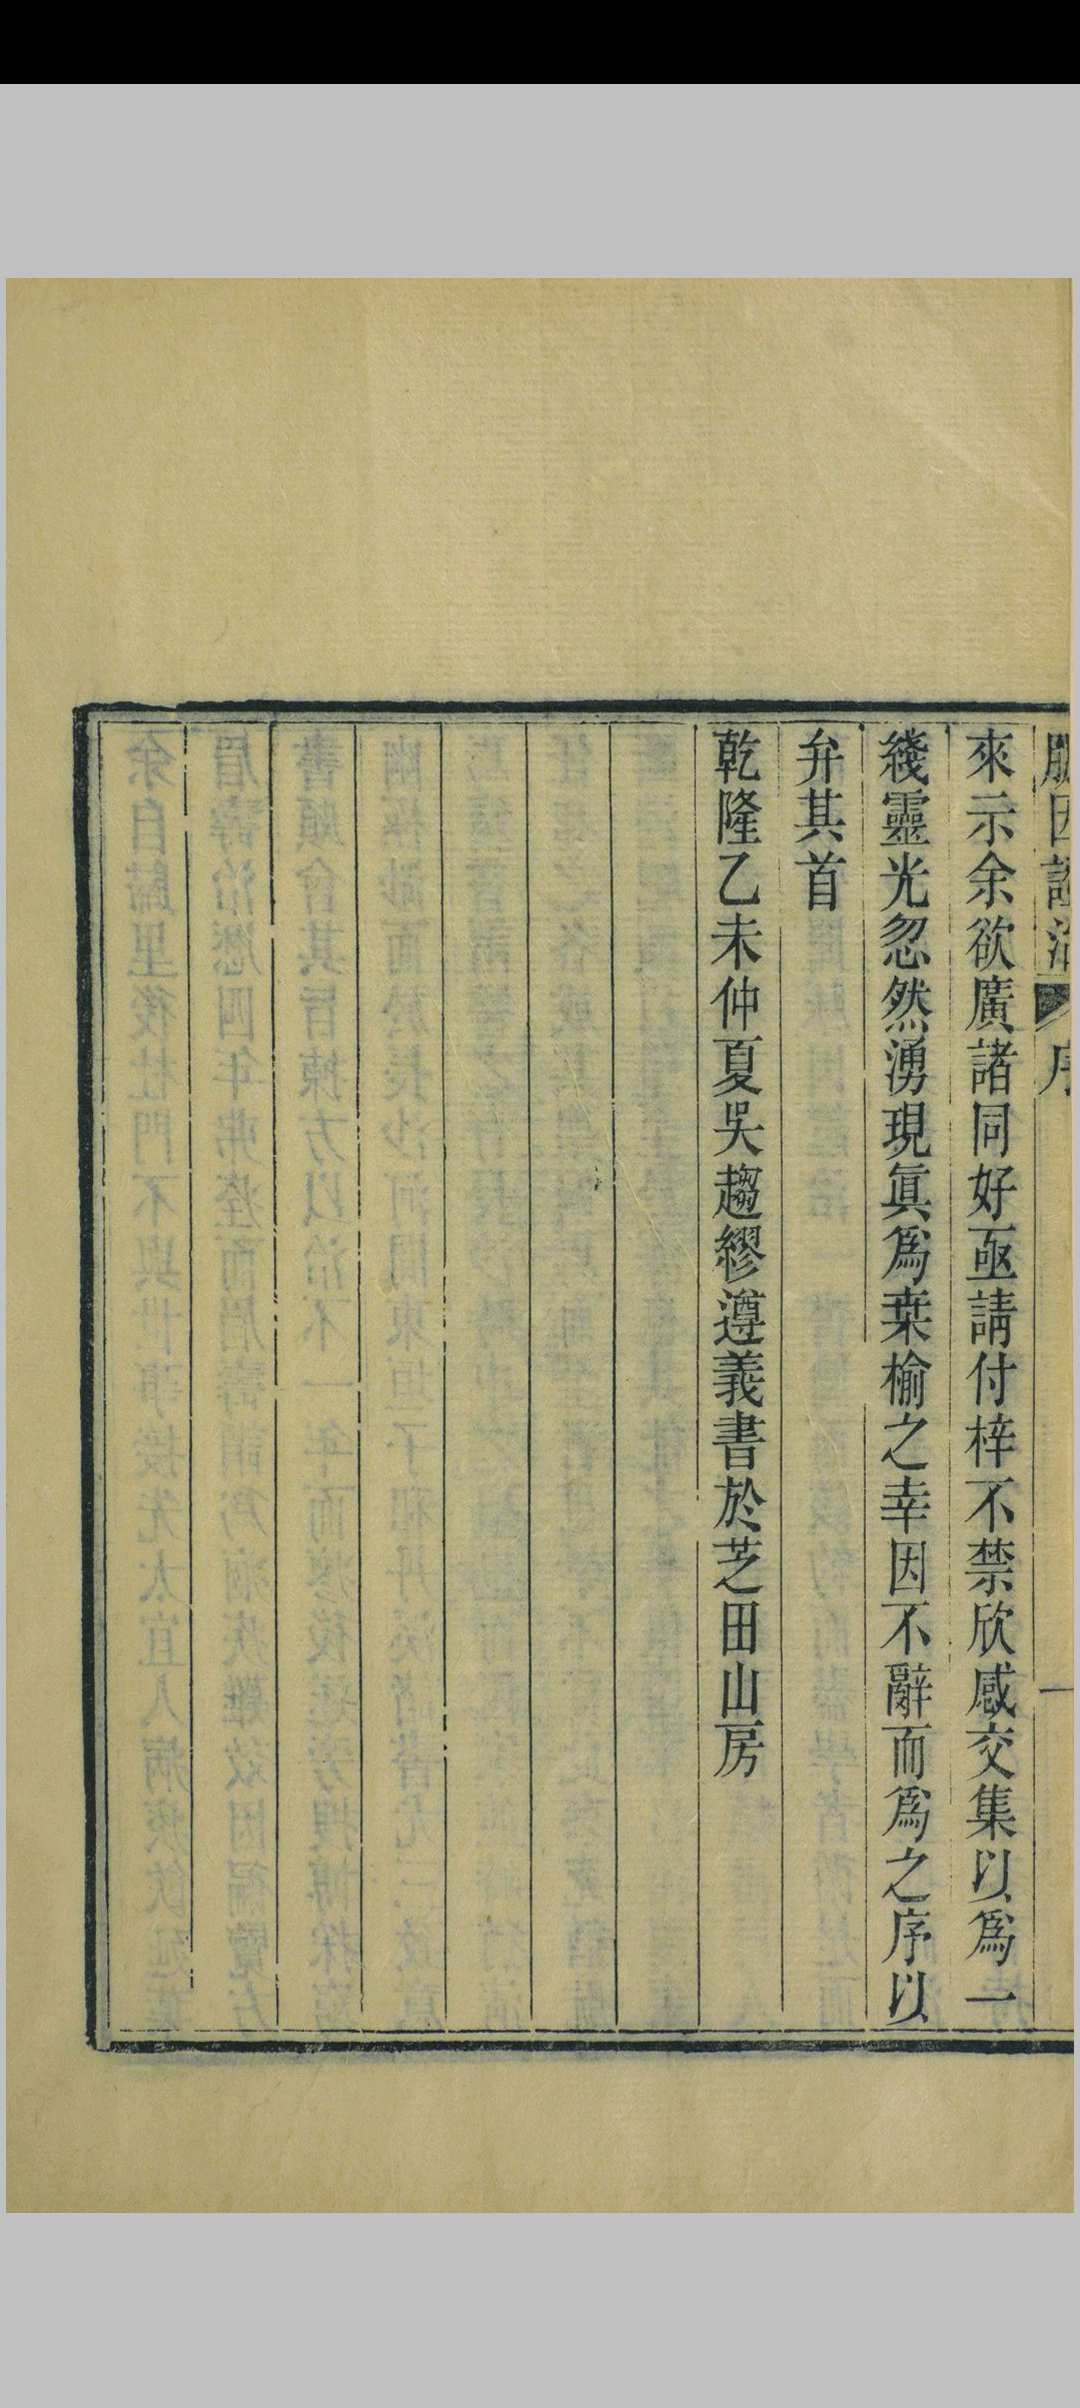 脈因證治 序 一
來示余欲廣諸同好亟請付梓不禁欣感交集以爲一
綫靈光忽然湧現眞爲桒榆之幸因不辭而爲之序以
弁其首
乾隆乙未仲夏吳趨繆遵義書於芝田山房